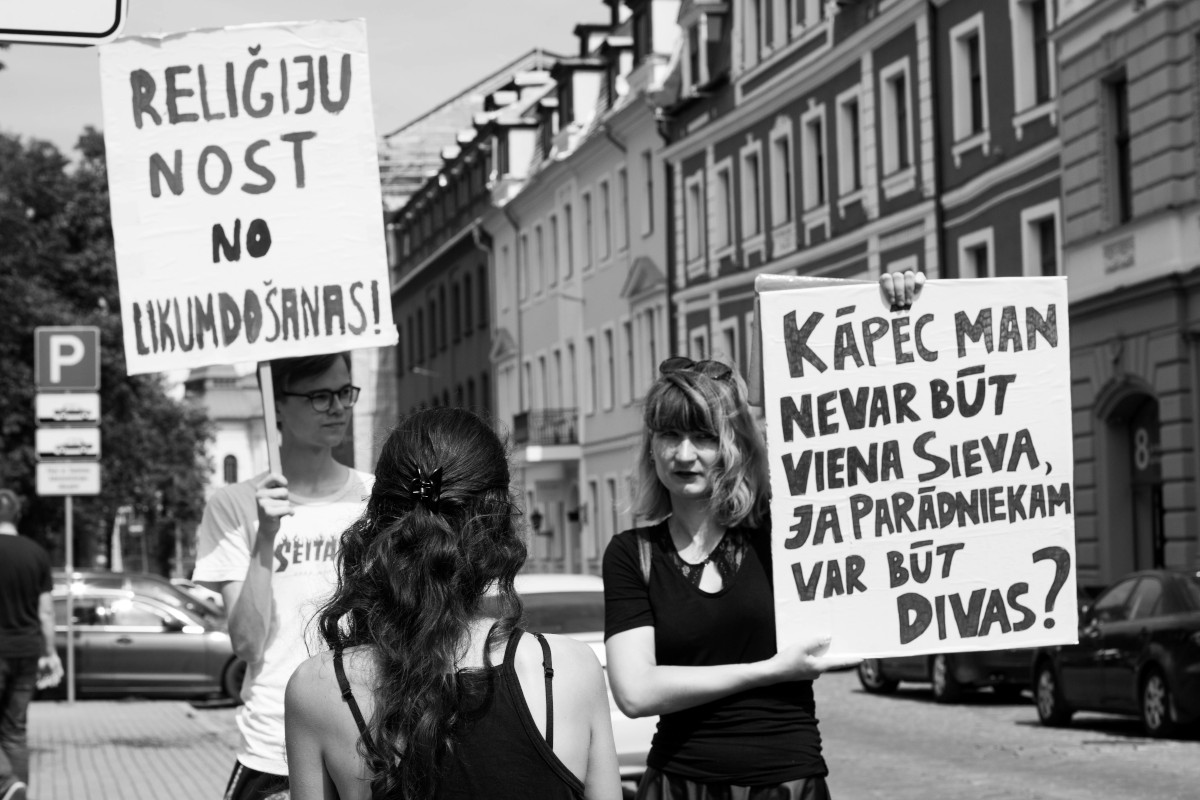 RELIĢIJU
NOST
NO
LIKUMDOŠANAS!
KĀPĒC MAN
NEVAR BŪT
VIENA SIEVA,
JA PARĀDNIEKAM
VAR BŪT
DIVAS?
P
8